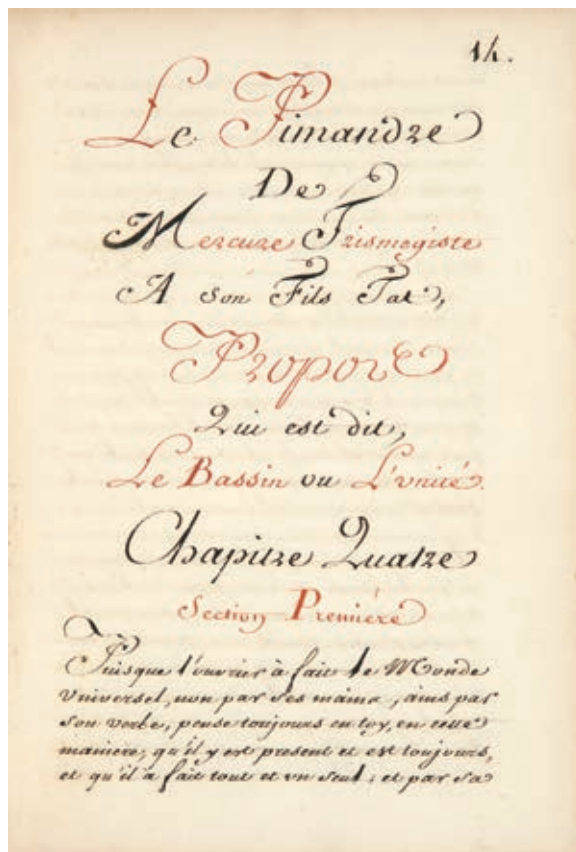 14.
Le Pimandre
De
Mercure Trismegiste
A Son Fils Tat,
Propos
Qui est dit,
Le Bassin ou L'vnité.
Chapitre Quatre
Section Premiere
Puisque l'ouvrier à fait le Monde
Vniversel, non par ses mains, ains par
son verbe, pense toujours en toy, en cette
maniere, qu'il y est present et est toujours,
et qu'il à fait tout et vn seul; et par sa